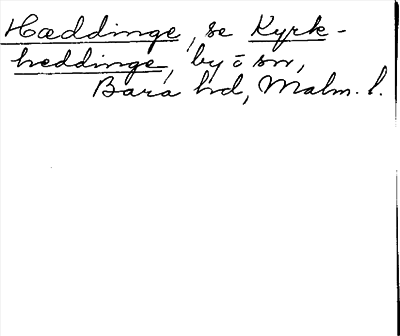 Hæddinge, se Kyrk-
heddinge, by o sn,
Bara hd, Malm. l.